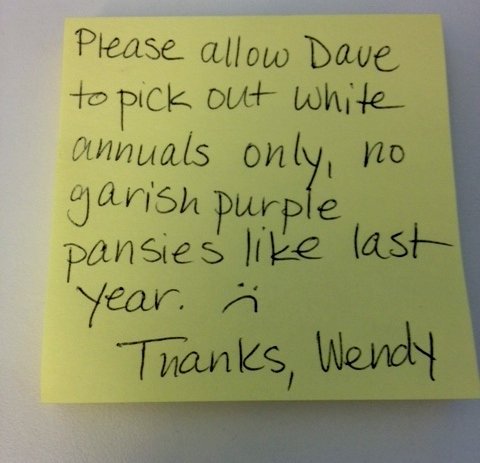 Please allow Dave
to pick out white
annuals only, no
garish purple
pansies like last
year. :(
Thanks, Wendy